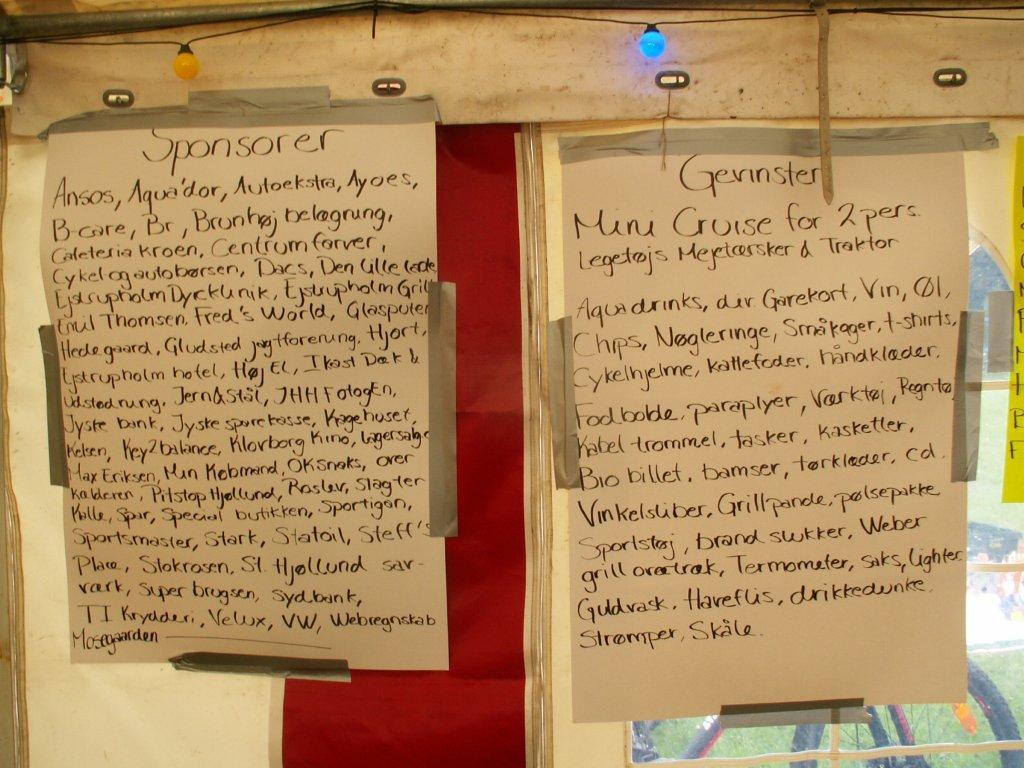 Sponsorer
Ansos, Aqua'dor, Autoekstra, Ayoes,
B-care, Br, Brunhøj belægning,
Cafeteria kroen, Centrum farver,
Cykel og autobørsen, Dacs, Den Lille
Ejstrupholm Dyreklinik, Ejstrupholm Grill
Emil Thomsen, Fred's World, Glasputer
Hedegaard, Gludsted jagtforening, Hjort,
Ejstrupholm hotel, Høj El, Ikast Dæk &
Udstødning, Jern & Stål, JHH Fotogen,
Jyske bank, Jyske sparekasse, Kagehuset,
Kelsen, Key2balance, Klovborg Kino, Lagersalg
Max Eriksen, Min Købmand, OK snaks, over
Kalderen, Pitstop Hjøllund, Roslev, Slagter
Kalle, Spar, Special butikken, Sportigan,
Sportsmaster, Stark, Statoil, Steff's
Place, Stokrosen, St. Hjøllund sav-
værk, Super brugsen, Sydbank,
TI Krydderi, Velux, VW, Webregnskab
Mosegaarden
Gevinster
Mini Cruise for 2 pers.
Legetøjs Mejetærsker & Traktor
Aqua drinks, div. Gavekort, Vin, Øl,
Chips, Nøgleringe, Småkager, t-shirts,
Cykelhjelme, kattefoder, håndklæder,
Fodbolde, paraplyer, Værktøj, Regntøj
Kabel trommel, tasker, kasketter,
Bio billet, bamser, tørklæder, cd.
Vinkelsliber, Grillpande, pølsepakke
Sportstøj, brand slukker, Weber
grill overtræk, Termometer, saks, lighter
Guldvask, Haveflis, drikkedunke.
Strømper, Skåle.